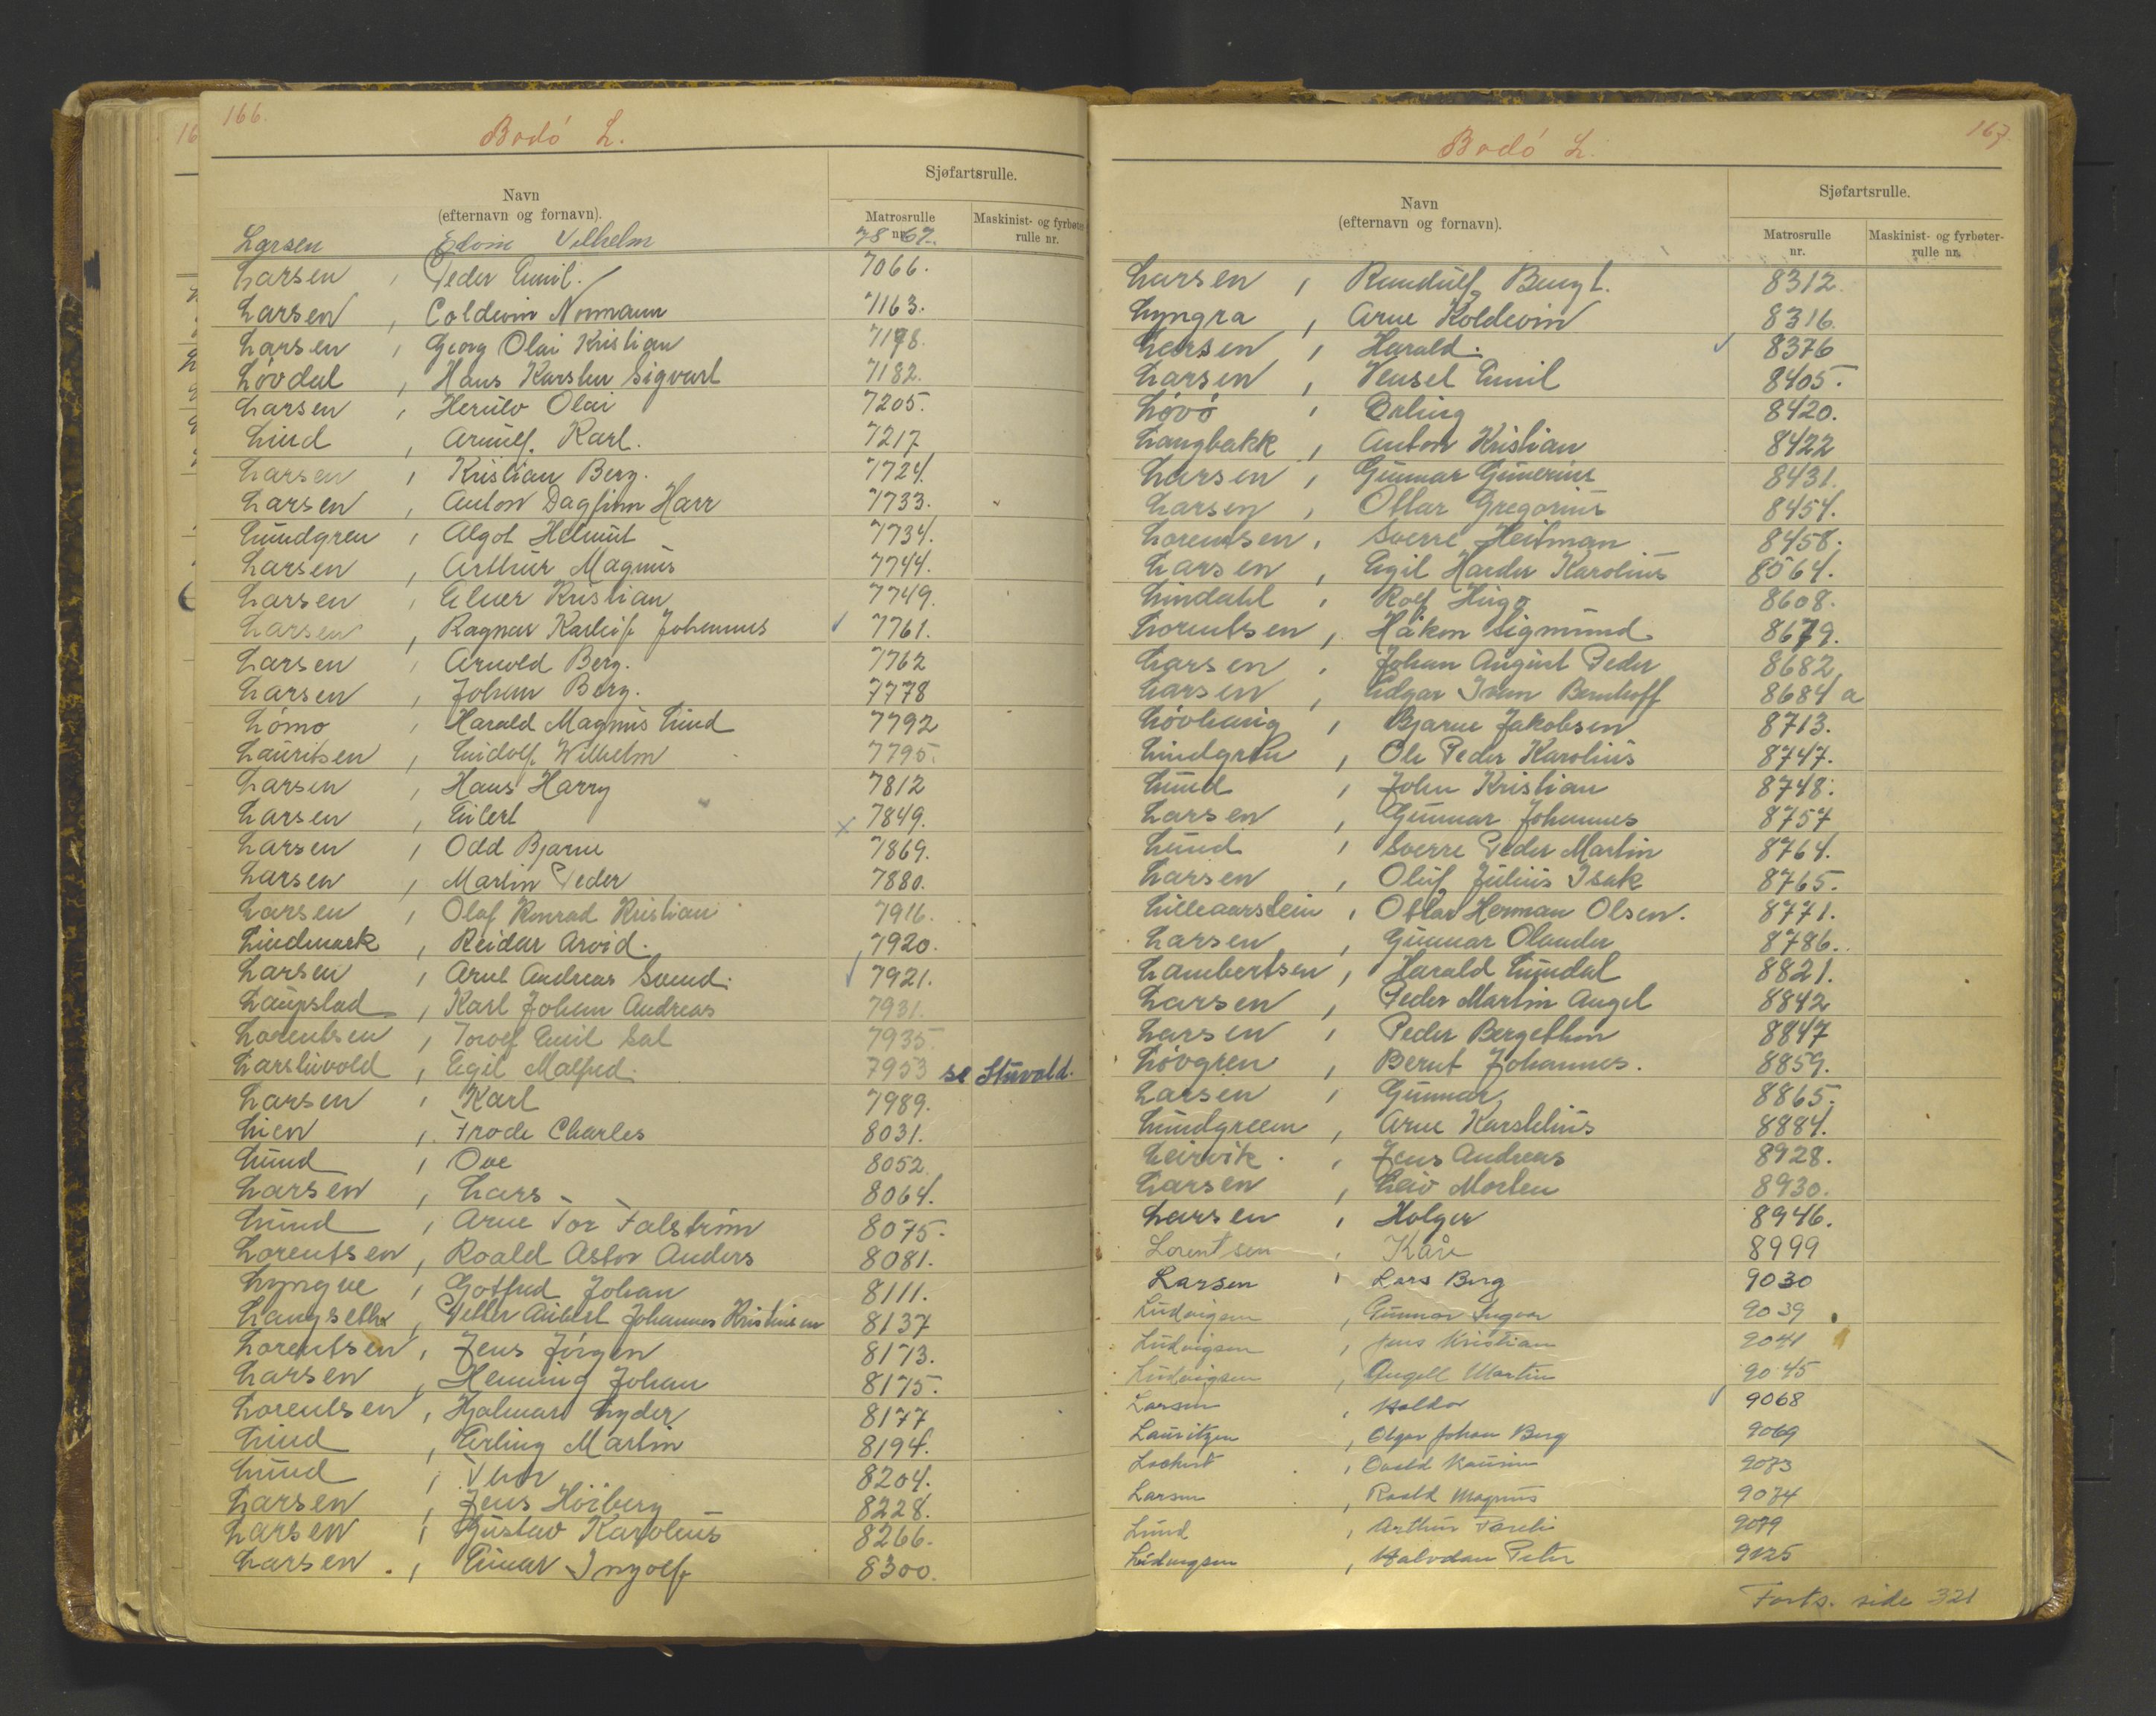 166.
Bodó L.
Navn
(efternavn og fornavn).
Sjøfartsrulle.
Matrosrulle
nr.
Maskinist- og fyrbøter-
rulle nr.
Larsen Edvin Vilhelm 7867.
Larsen, Peder Emil. 7066.
Larsen, Coldevin Normann 7163.
Larsen, Georg Olai Kristian 7178.
Lóvdal, Hans Karsten Sigvart 7182.
Larsen, Herulv Olai 7205.
Lind, Arnulf Karl. 7217
Larsen, Kristian Berg. 7724.
Larsen, Anton Dagfinn Harr 7733.
Lundgren, Algot Helmut 7734.
Larsen, Arthur Magnus 7744.
Larsen, Elner Kristian 7749.
Larsen, Ragnar Karleif Johannes 7761.
Larsen, Arnold Berg. 7762
Larsen, Johan Berg. 7778
Lómo, Harald Magnus Lund 7792
Lauritsen, Lindolf Wilhelm 7795.
Larsen, Hans Harry 7812
Larsen, Eilert 7849.
Larsen, Odd Bjarne 7869.
Larsen, Martin Peder 7880.
Larsen, Olaf Konrad Kristian 7916.
Lindmark, Reidar Arvid. 7920.
Larsen, Arne Andreas Svend. 7921.
Laupstad, Karl Johan Andreas 7931.
Lorentsen, Torolf Emil Sal 7935.
Larsluvold, Egil Malfred. 7953 se Stuvold.
Larsen, Karl 7989.
Lien, Frode Charles 8031.
Lund, Ove 8052.
Larsen, Lars 8064.
Lund, Arne Tor Falstrøm 8075.
Lorentsen, Roald Astor Anders 8081.
Lyngve, Gotfred Johan 8111.
Langseth, Petter Aubert Johannes Kristiansen 8137
Lorentsen, Jens Jörgen 8173.
Larsen, Henning Johan 8175.
Lorentsen, Hjalmar Lyder 8177
Lind, Erling Martin 8194.
Lund, 8204.
Larsen, Jens Höiberg 8228.
Larsen, Gustav Karolius 8266.
Larsen, Einar Ingolf 8300.
167.
Bodó L.
Navn
(efternavn og fornavn).
Sjøfartsrulle.
Matrosrulle
nr.
Maskinist- og fyrbøter-
rulle nr.
Larsen, Randulf Bengt. 8312.
Lyngra, Arne Koldevin 8316.
Larsen, Harald. 8376
Larsen, Vensel Emil 8405.
Lóvó, Erling 8420.
Langbakk, Anton Kristian 8422
Larsen, Gunnar Gunerius 8431.
Larsen, Ottar Gregorius 8454.
Lorentsen, Sverre Heitman 8458.
Larsen, Egil Harder Karolius 8564.
Lindahl, Rolf Hugo 8608.
Lorentsen, Håkon Sigmund 8679.
Larsen, Johan August Peder 8682
Larsen, Edgar Ivan Bernhoff 8684 a
Lóvhaug, Bjarne Jakobsen 8713.
Lindgren, Ole Peder Karolius 8747.
Lund, John Kristian 8748.
Larsen, Gunnar Johannes 8757
Lund, Sverre Peder Martin 8764.
Larsen, Oluf Julius Isak 8765.
Lilleaarstein, Ottar Herman Olsen. 8771.
Larsen, Gunnar Olander 8786.
Lambertsen, Harald Lundal 8821.
Larsen, Peder Martin Angel 8842
Larsen, Peder Bergethon 8847
Lóvgren, Bernt Johannes. 8859.
Larsen, Gunnar 8865.
Lundgreen, Arne Karstelius 8884.
Leirvik, Jens Andreas 8928.
Larsen, Leiv Morten 8930.
Larsen, Holger 8946.
Lorentsen, Kåre 8999
Larsen, Lars Berg 9030
Ludvigsen, Gunnar Ingvar 9039
Ludvigsen, Jens Kristian 9041
Ludvigsen, Angell Martin 9045
Larsen, Haldor 9068
Lauritzen, Olger Johan Berg 9069
Lockert, 9073
Larsen, Roald Magnus 9074
Lund, Arthur Pareli 9079
Ludvigsen, Halvdan Peter 9125
Forts. side 321